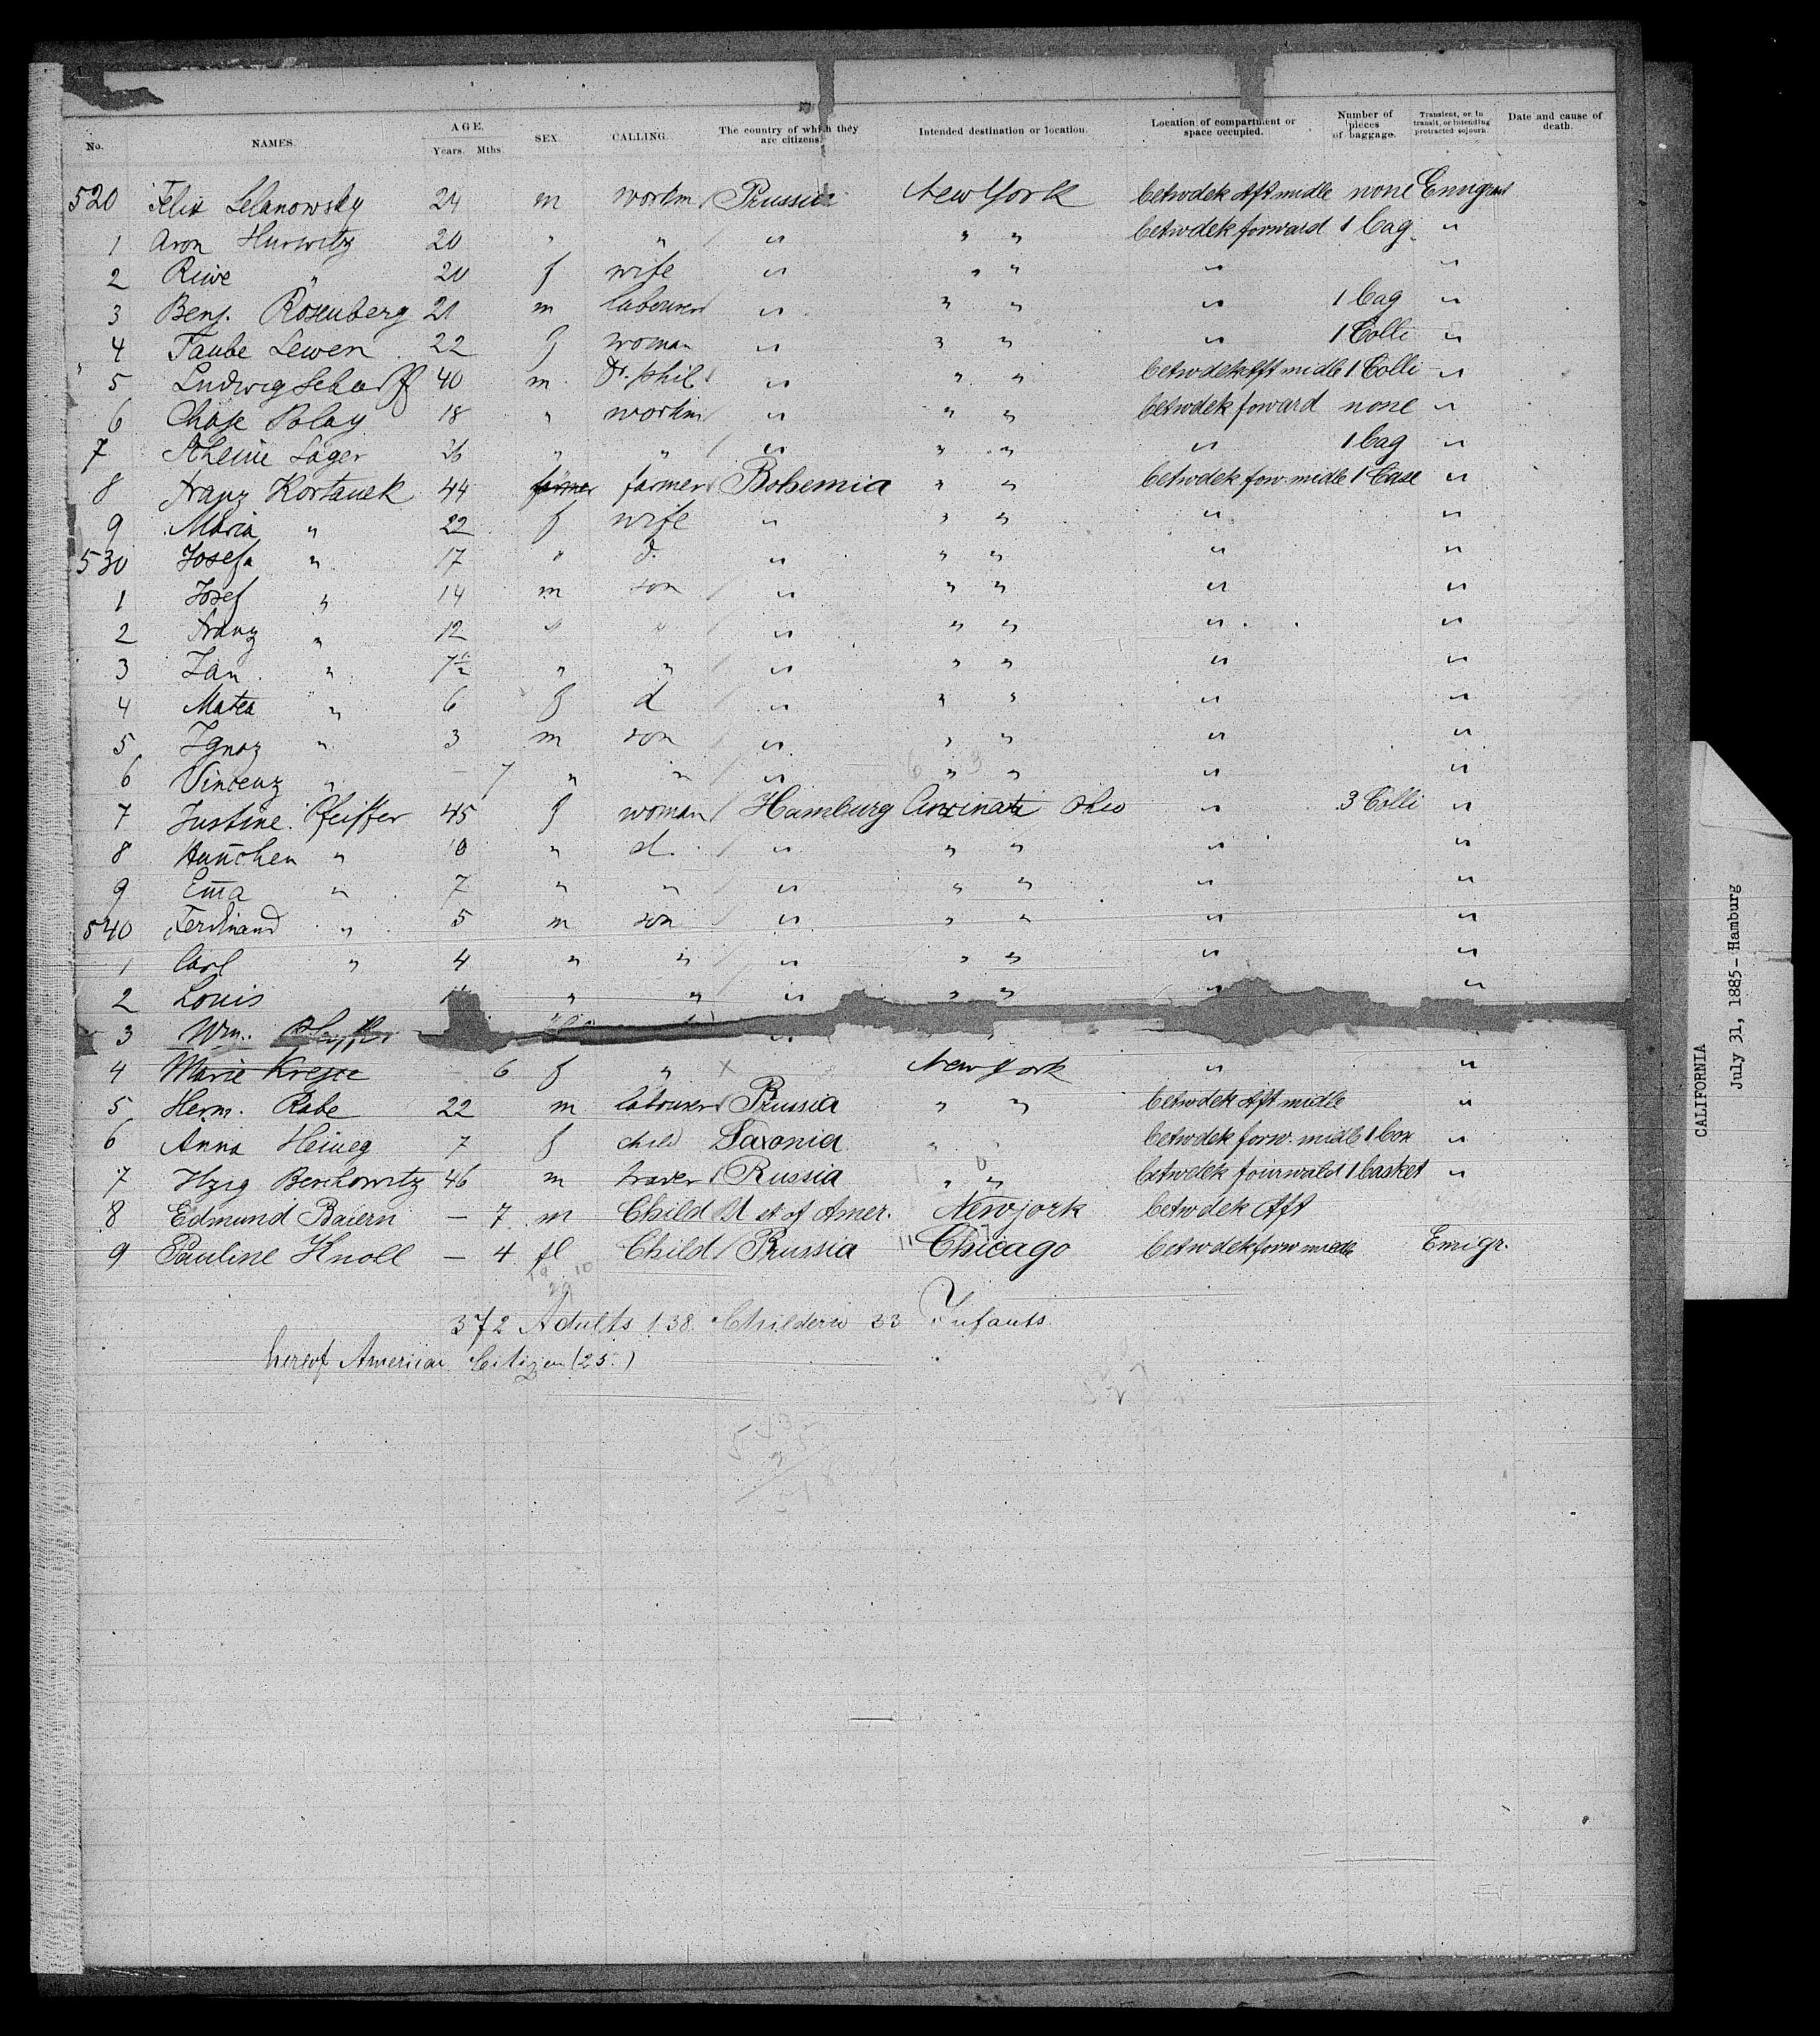 No. NAMES. AGE. Years. Mths. SEX. CALLING. The country of which they are citizens. Intended destination or location. Location of compartment or space occupied. Number of pieces of baggage. Transient, or in transit, or intending protracted sojourn. Date and cause of death.
520 Felix Lelanowsky 24 m workm Prussia New York betwdek Aft midle none Emigrant
1 Aron Hurwitz 20 " " " " " betwdek forward 1 bag "
2 Riwe " 20 f wife " " " " "
3 Benj. Rosenberg 21 m labourer " " " " 1 bag "
4 Taube Lewen 22 f woman " " " " 1 Colli "
5 Ludwig Scharff 40 m. Dr. phil " " " betwdek Aft midle 1 Colli "
6 Chase Polay 18 " workm " " " betwdek foward none "
7 Lager 26 " " " " " " 1 bag "
8 Franz Kortanek 44 farmer farmer Bohemia " " betwdek forw. midle 1 Case "
9 Maria " 22 f wife " " " " "
530 Josefa " 17 " d. " " " " "
1 Josef " 14 m son " " " " "
2 Franz " 12 " " " " " " "
3 Jan " 7 " " " " " " "
4 Matea " 6 f d " " " " "
5 Ignaz " 3 m son " " " " "
6 Vincenz " — 7 " " " " " " "
7 Justine Pfeiffer 45 f woman Hamburg Cincinati Ohio " 3 Colli "
8 Hannchen " 10 " d. " " " " "
9 Em̄a " 7 " " " " " " "
540 Ferdinand " 5 m son " " " " "
1 Carl " 4 " " " " " " "
2 Louis " " " " " " "
3 Wm. Pfeiffer
4 Marie Krejce 6 f " New York " "
5 Herm. Rabe 22 m labourer Prussia " " betwdek Aft midle "
6 Anna Heineg 7 f child Saxonia " " betwdek forw. midle 1 box "
7 Hzig Berchowitz 46 m trader Russia " " betwdek fourwald 1 basket "
8 Edmund Baiern — 7. m Child U. st of Amer. Newjork betwdek Aft
9 Pauline Knoll — 4 fl Child Prussia Chicago betwdek forw midle Emigr.
372 Adults 138. Childern 33 Infants.
hereof American Citizen (25.)
CALIFORNIA
July 31, 1885-Hamburg